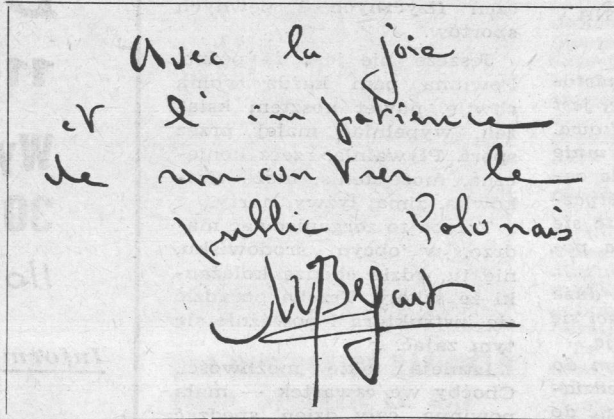 Avec la joie
et l'impatience
de rencontrer le
Public Polonais
MBejart